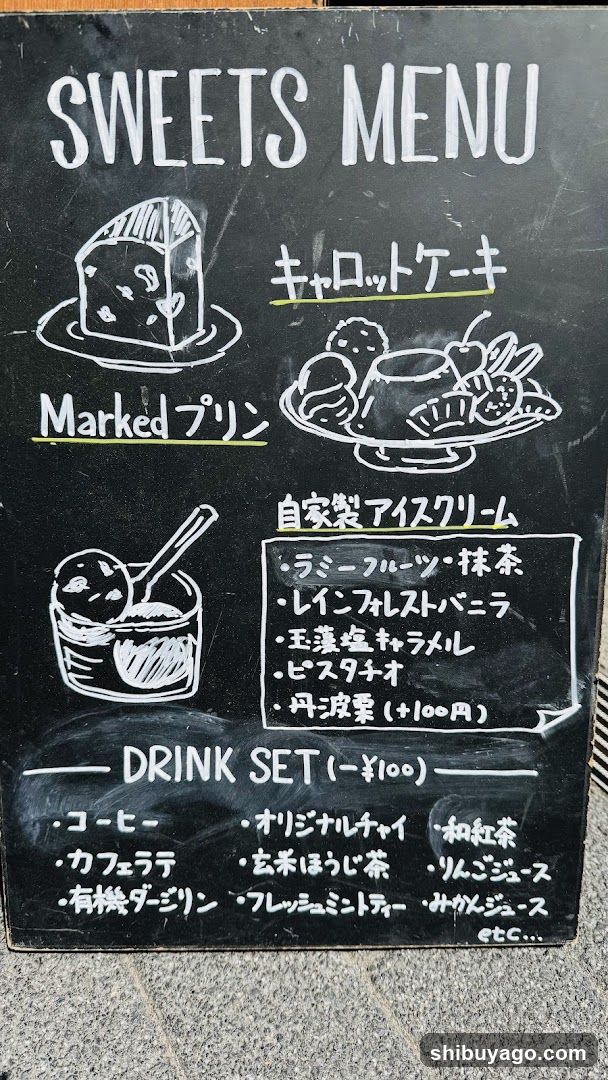 SWEETS MENU
キャロットケーキ
Marked プリン
自家製アイスクリーム
・ラミーフルーツ・抹茶
・レインフォレストバニラ
・玉藻塩キャラメル
・ピスタチオ
・丹波栗(+100円)
DRINK SET(-¥100)
・コーヒー ・オリジナルチャイ ・和紅茶
・カフェラテ ・玄米ほうじ茶 ・りんごジュース
・有機ダージリン ・フレッシュミントティー ・みかんジュース
etc...
shibuyago.com